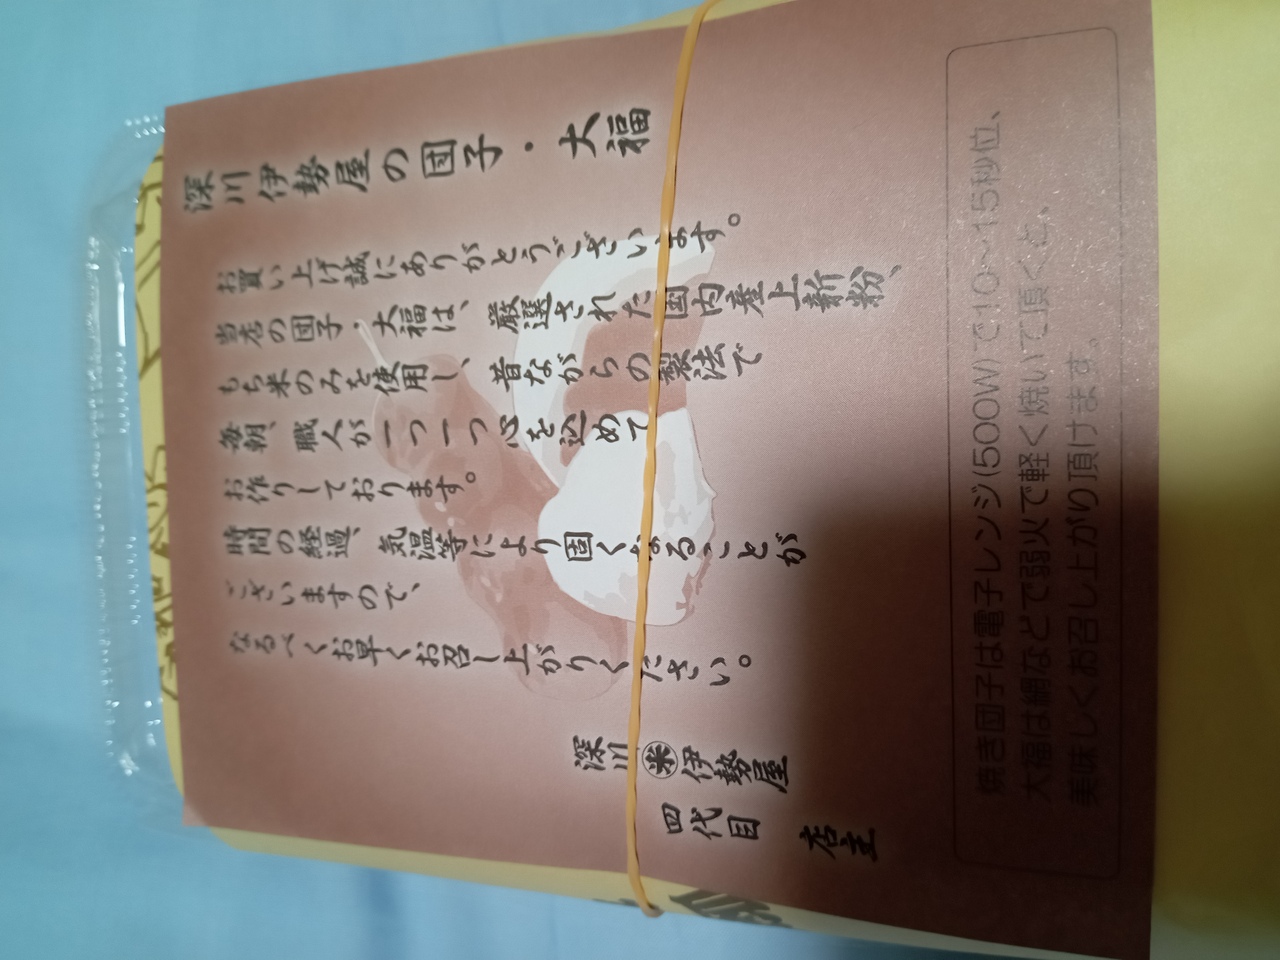 深川伊勢屋の団子・大福
お買い上げ誠にありがとうございます。
当店の団子・大福は、厳選された国内産上新粉、
もち米のみを使用し、昔ながらの製法で
毎朝、職人が一つ一つ心を込めて
お作りしております。
時間の経過、気温等により固くなることが
ございますので、
なるべくお早くお召し上がりください。
深川㊍伊勢屋
四代目 店主
焼き団子は電子レンジ(500W)で10〜15秒位、
大福は網などで弱火で軽く焼いて頂くと、
美味しくお召し上がり頂けます。